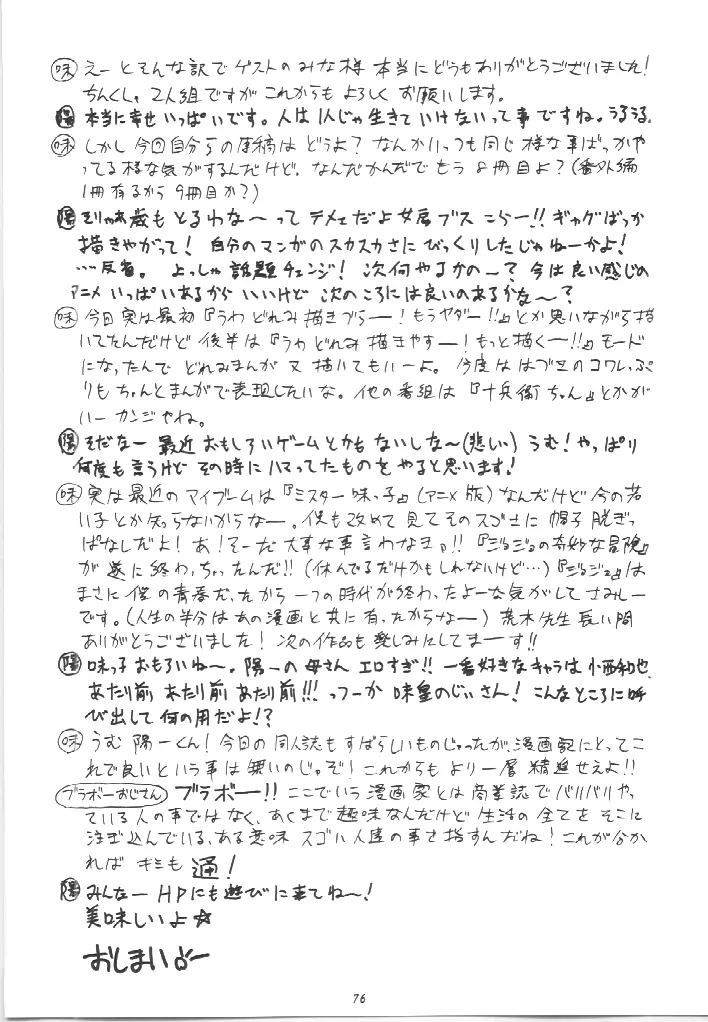 味 えーとそんな訳でゲストのみな様本当にどうもありがとうございました!
ちんくしゃ2人組ですがこれからもよろしくお願いします。
陽 本当に幸せいっぱいです。人は1人じゃ生きていけないって事ですね。うるうる。
味 しかし今回自分らの原稿はどうよ?なんかいっつも同じ様な事ばっかや
ってる様な気がするんだけど、なんだかんだでもう8冊目よ?(番外編
1冊有るから9冊目か?)
陽 そりゃ歳もとるわな〜ってテメェだよ女房ブスこらー!!ギャグばっか
描きやがって!自分のマンガのスカスカさにびっくりしたじゃねーかよ!
…反省。よっしゃ話題チェンジ!次何やるかの〜?今は良い感じの
アニメいっぱいあるからいいけど次のころには良いのあるかな〜?
味 今回実は最初『うわどれみ描きづらー!もうヤダー!!』とか思いながら描
いてたんだけど後半は『うわどれみ描きやすー!もっと描くー!!』モード
になったんでどれみまんが又描いてもいーよ。今度ははづきのコワレっぷ
りもちゃんとまんがで表現したいな。他の番組は『十兵衛ちゃん』とかが
いーカンジやね。
陽 そだなー最近おもしろいゲームとかもないしな〜(悲しい)うむ!やっぱり
何度も言うけどその時にハマってたものをやると思います!
味 実は最近のマイブームは『ミスター味っ子』(アニメ版)なんだけど今の若
い子とか知らないからなー。僕も改めて見てそのスゴさに帽子脱ぎっ
ぱなしだよ!あ!そーだ大事な事言わなきゃ!!『ジョジョの奇妙な冒険』
が遂に終わっちゃったんだ!!(休んでるだけかもしれないけど…)『ジョジョ』は
まさに僕の青春だったから一つの時代が終わったよーな気がしてさみしー
です。(人生の半分はあの漫画と共に有ったからなー)荒木先生長い間
ありがとうございました!次の作品も楽しみにしてまーす!!
陽 味っ子おもろいね〜。陽一の母さんエロすぎ!!一番好きなキャラは小西和也。
あたり前あたり前あたり前!!!っつーか味皇のじいさん!こんなところに呼
び出して何の用だよ!?
味 うむ陽一くん!今回の同人誌もすばらしいものじゃったが、漫画家にとってこ
れで良いという事は無いのじゃぞ!これからもより一層精進せえよ!!
ブラボーおじさん ブラボー!!ここでいう漫画家とは商業誌でバリバリやっ
ている人の事ではなく、あくまで趣味なんだけど生活の全てをそこに
注ぎ込んでいる、ある意味スゴい人達の事を指すんだね!これが分か
ればキミも通!
陽 みんなーHPにも遊びに来てね〜!
美味しいよ☆
おしまいっ
76